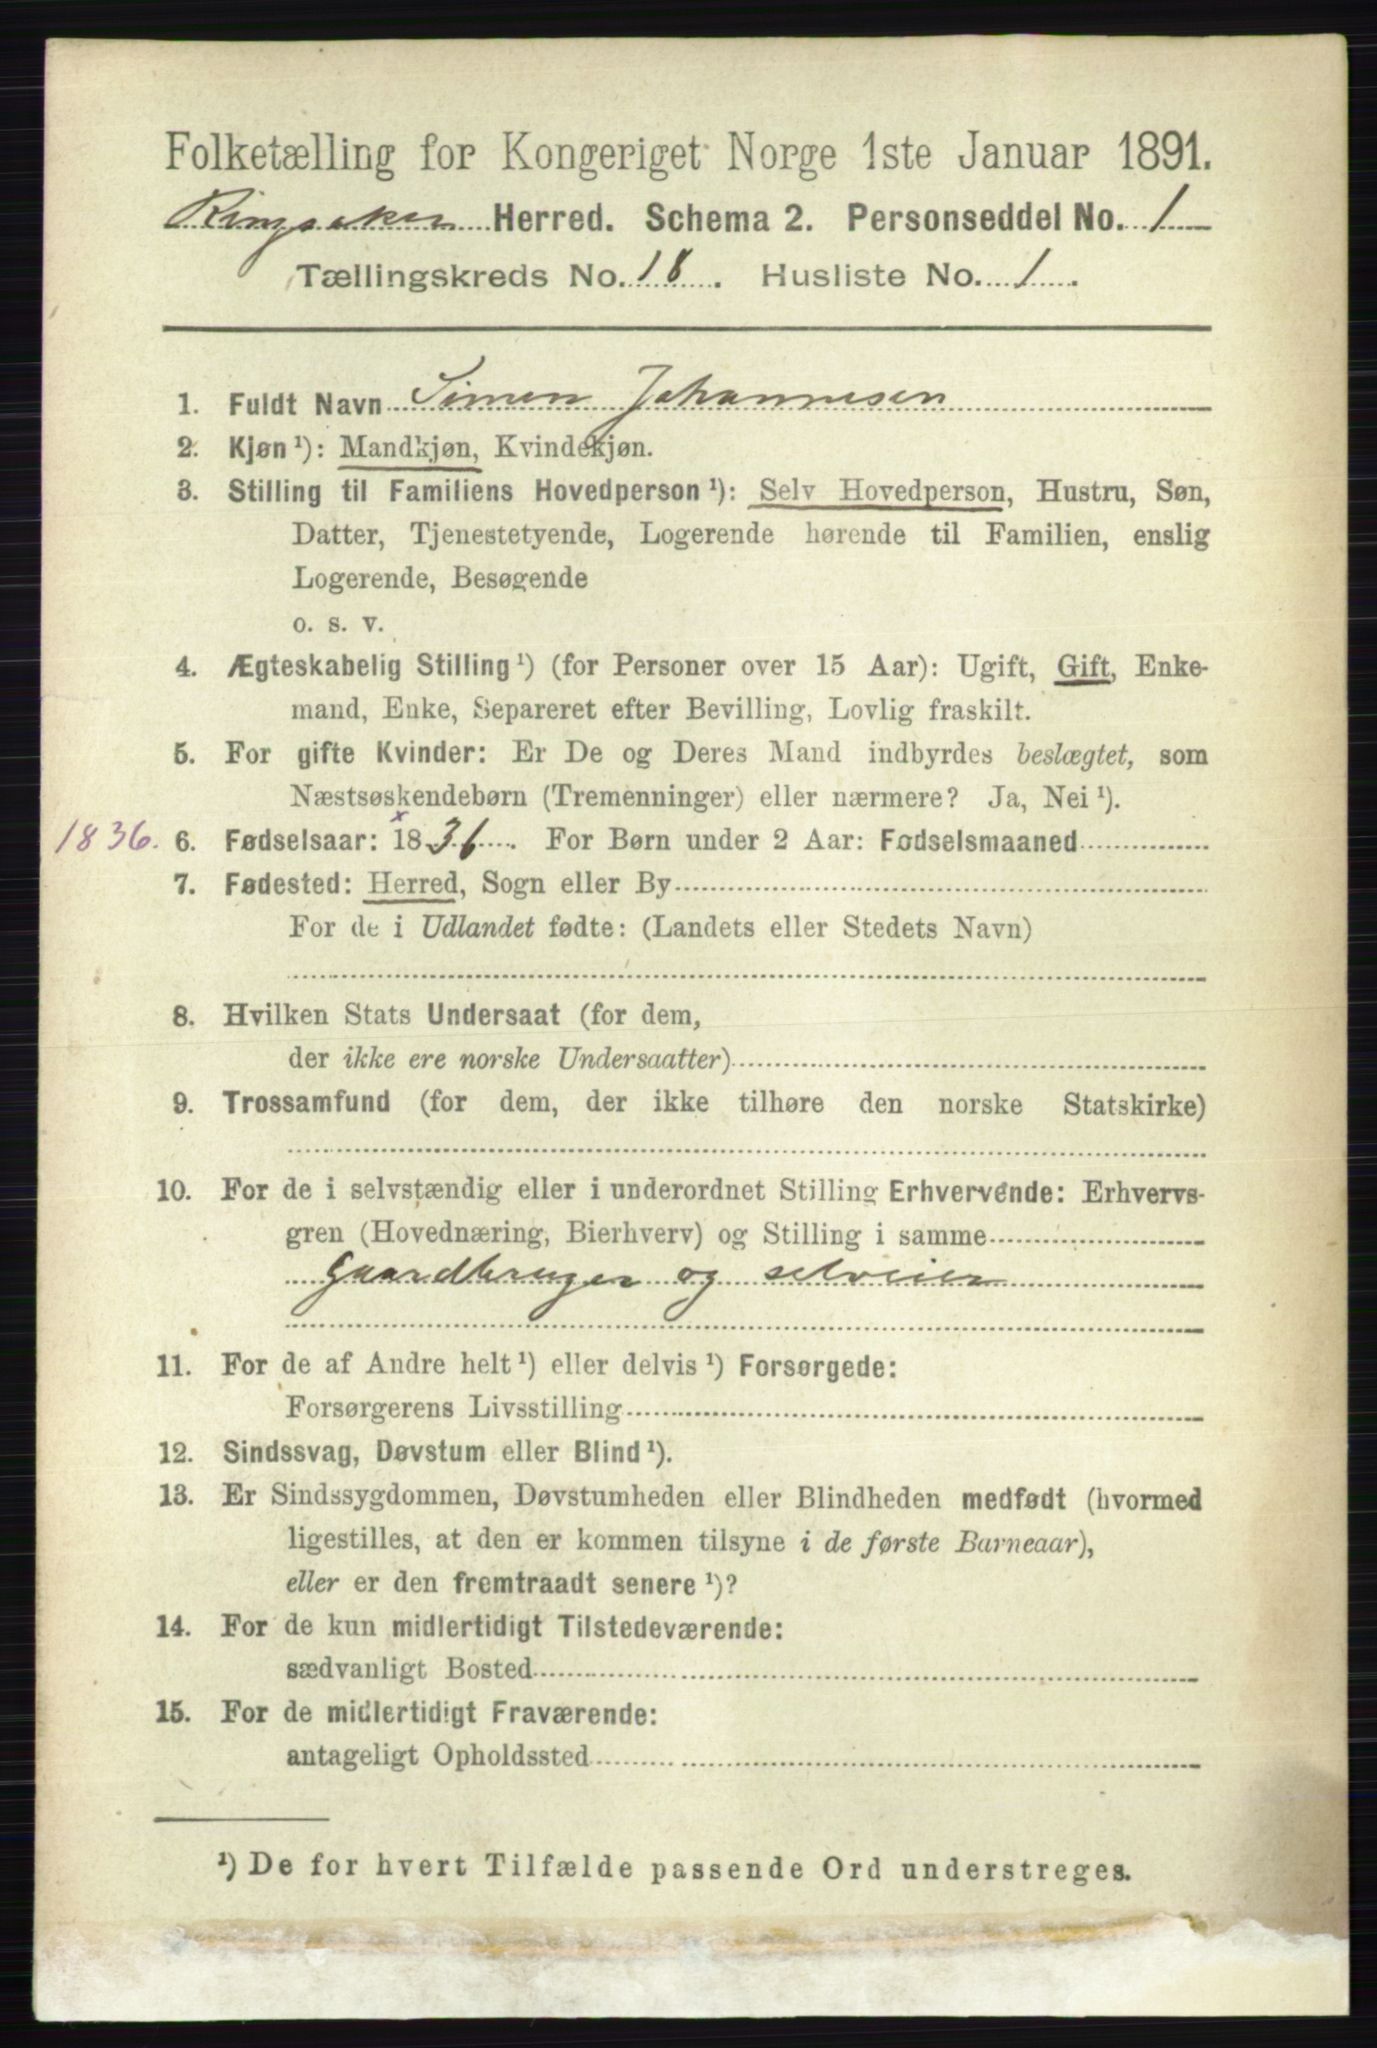 Folketælling for Kongeriget Norge 1ste Januar 1891.
Ringsaker Herred. Schema 2. Personseddel No. 1
Tællingskreds No. 18. Husliste No. 1.
1. Fuldt Navn Simen Johannesen
2. Kjøn¹): Mandkjøn, Kvindekjøn.
3. Stilling til Familiens Hovedperson¹): Selv Hovedperson, Hustru, Søn,
Datter, Tjenestetyende, Logerende hørende til Familien, enslig
Logerende, Besøgende
o. s. v.
4. Ægteskabelig Stilling¹) (for Personer over 15 Aar): Ugift, Gift, Enke-
mand, Enke, Separeret efter Bevilling, Lovlig fraskilt.
5. For gifte Kvinder: Er De og Deres Mand indbyrdes beslægtet, som
Næstsøskendebørn (Tremenninger) eller nærmere? Ja, Nei¹).
1836. 6. Fødselsaar: x 1836. For Børn under 2 Aar: Fødselsmaaned
7. Fødested: Herred, Sogn eller By
For de i Udlandet fødte: (Landets eller Stedets Navn)
8. Hvilken Stats Undersaat (for dem,
der ikke ere norske Undersaatter)
9. Trossamfund (for dem, der ikke tilhøre den norske Statskirke)
10. For de i selvstændig eller i underordnet Stilling Erhvervende: Erhvervs-
gren (Hovednæring, Bierhverv) og Stilling i samme
gaardbruger og selveier
11. For de af Andre helt¹) eller delvis¹) Forsørgede:
Forsørgerens Livsstilling
12. Sindssvag, Døvstum eller Blind¹).
13. Er Sindssygdommen, Døvstumheden eller Blindheden medfødt (hvormed
ligestilles, at den er kommen tilsyne i de første Barneaar),
eller er den fremtraadt senere¹)?
14. For de kun midlertidigt Tilstedeværende:
sædvanligt Bosted
15. For de midlertidigt Fraværende:
antageligt Opholdssted
¹) De for hvert Tilfælde passende Ord understreges.